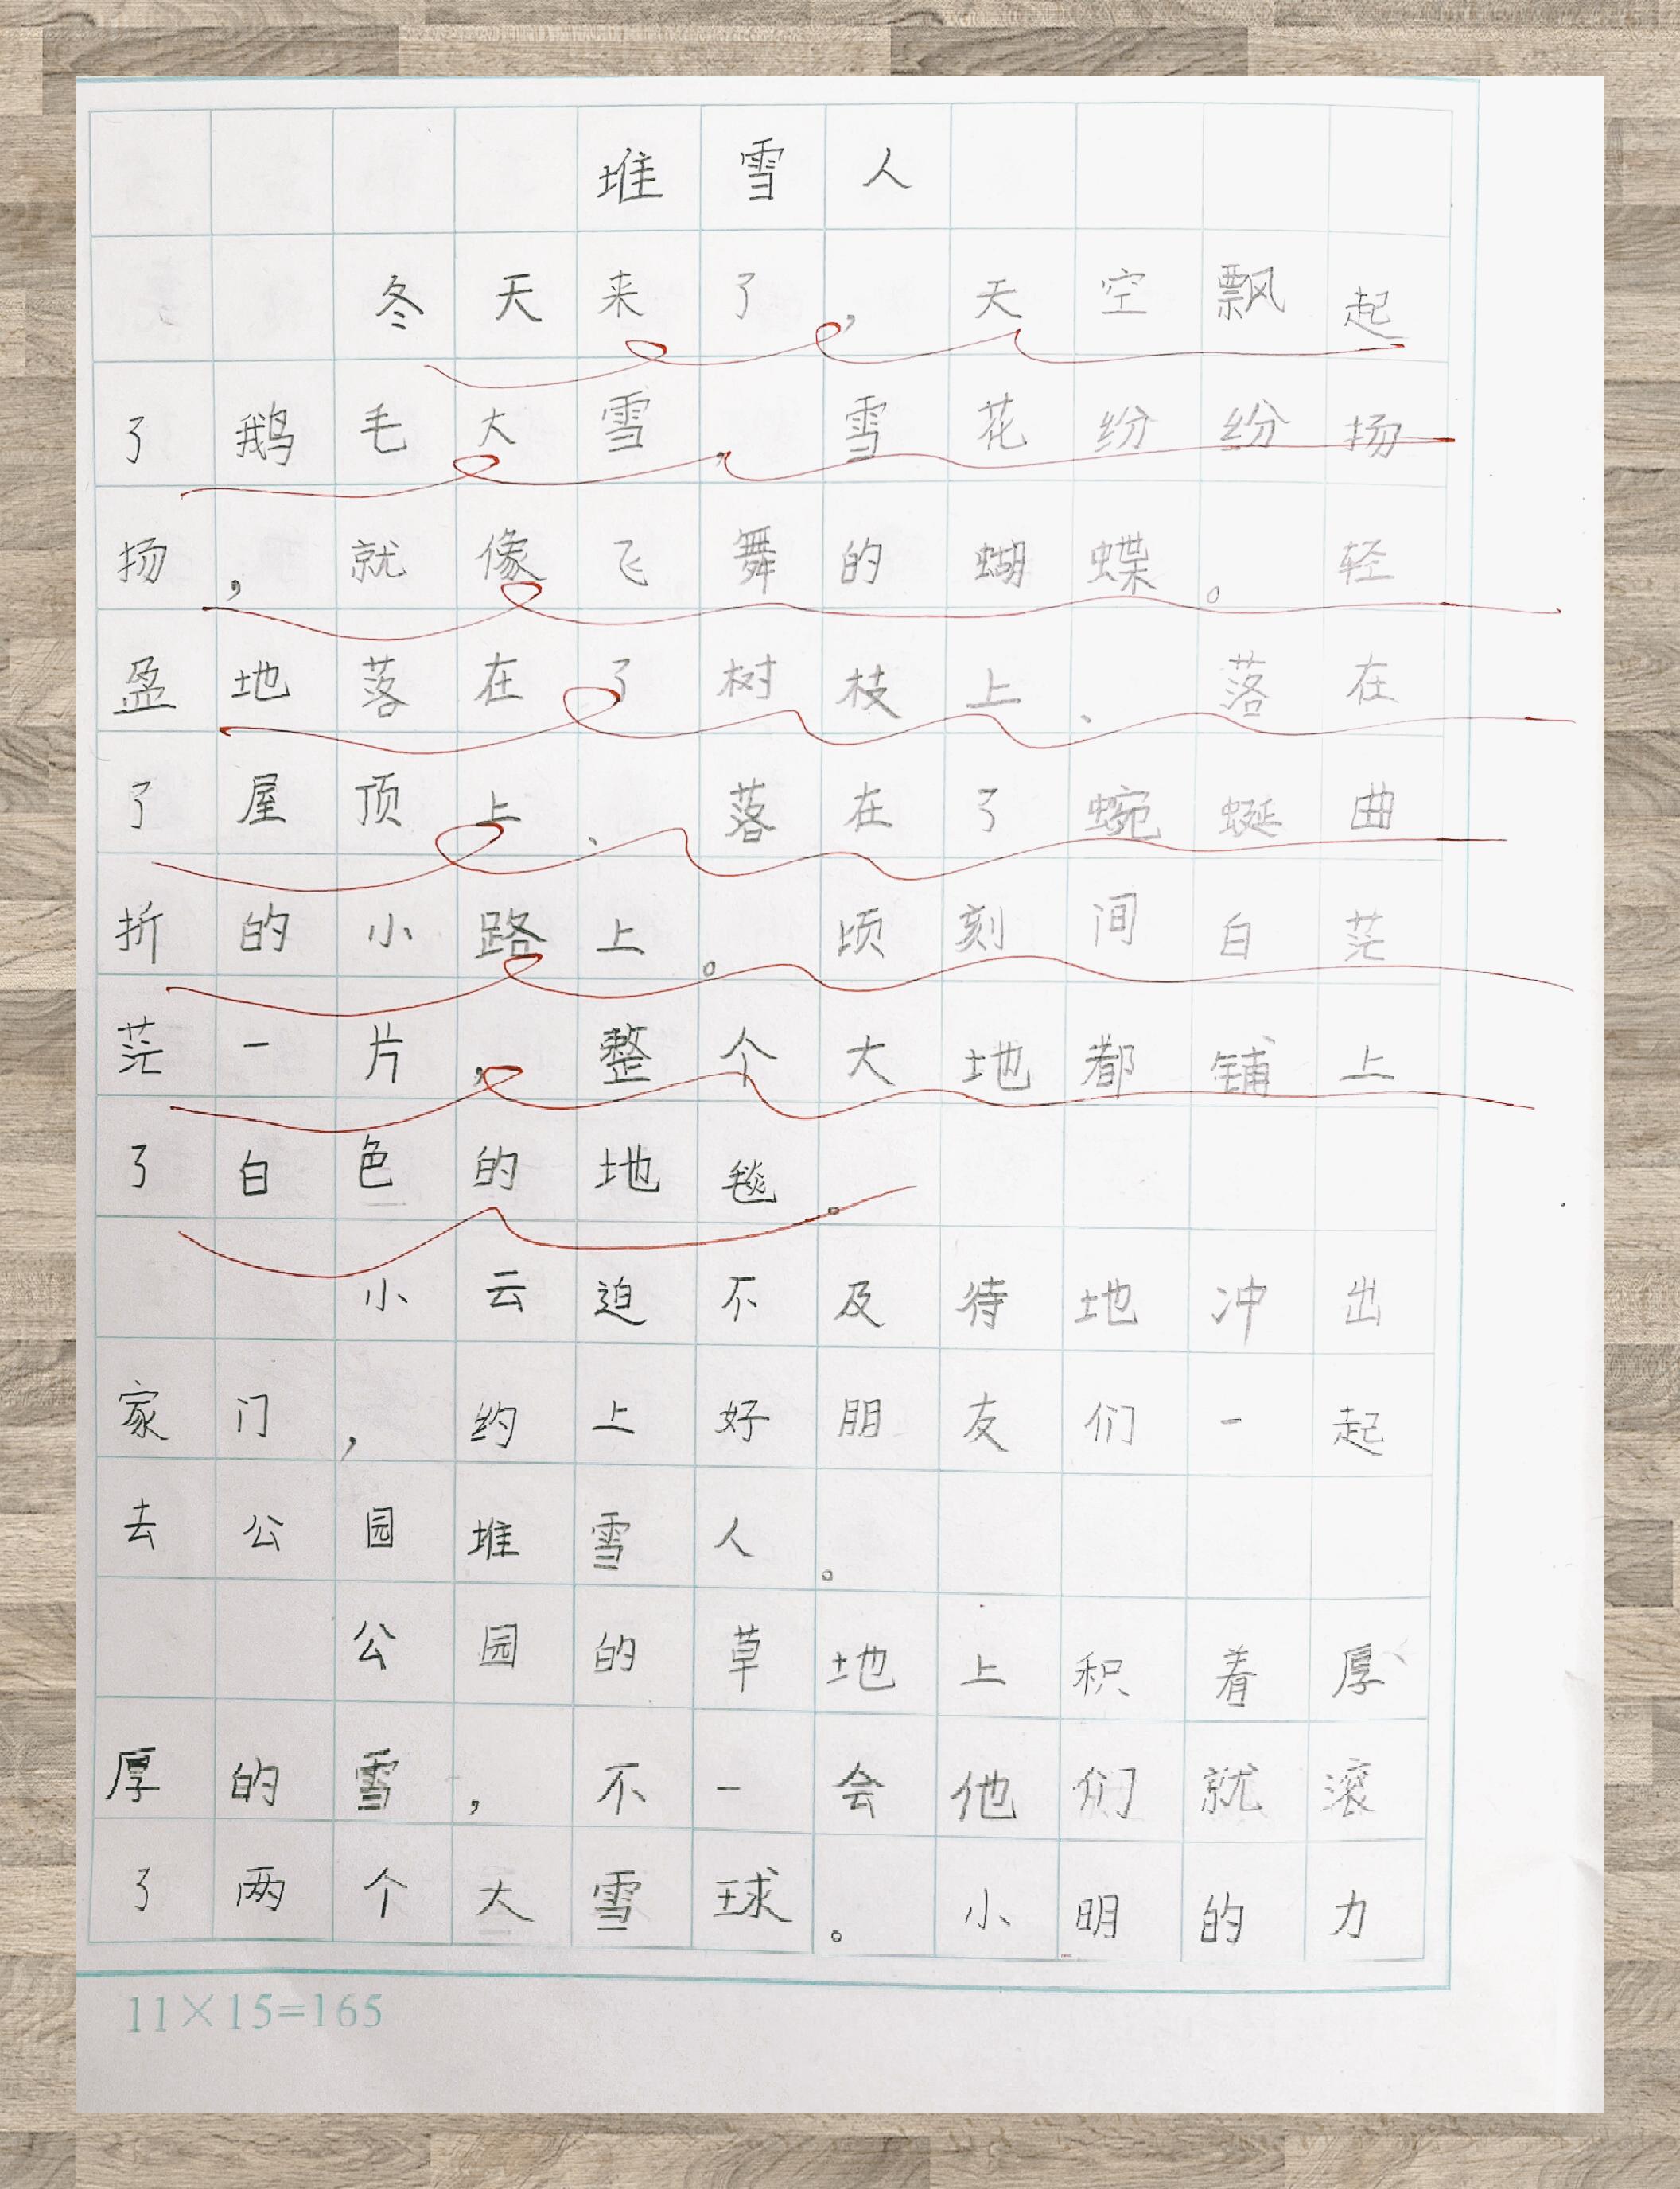 堆雪人
冬天来了，天空飘起
了鹅毛大雪，雪花纷纷扬
扬，就像飞舞的蝴蝶。轻
盈地落在了树枝上、落在
了屋顶上、落在了蜿蜒曲
折的小路上。顷刻间白茫
茫一片，整个大地都铺上
了白色的地毯。
小云迫不及待地冲出
家门，约上好朋友们一起
去公园堆雪人。
公园的草地上积着厚
厚的雪，不一会他们就滚
了两个大雪球。小明的力
11×15=165